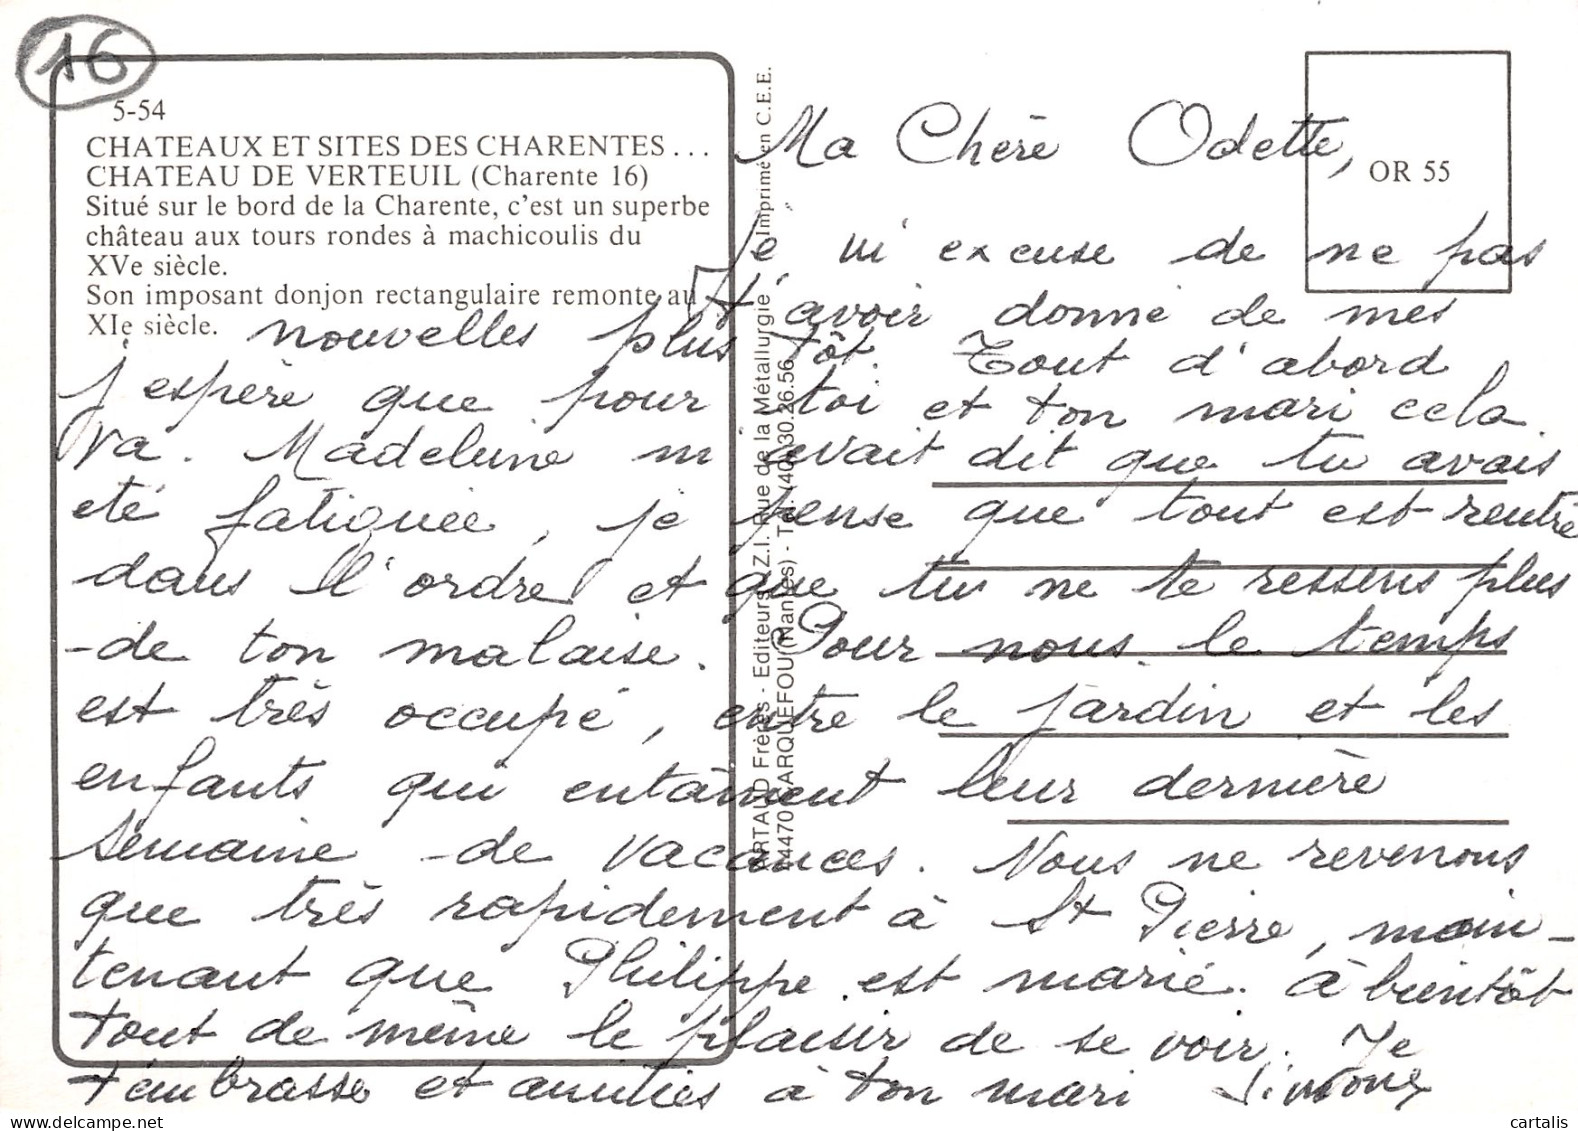 16
5-54
CHATEAUX ET SITES DES CHARENTES...
CHATEAU DE VERTEUIL (Charente 16)
Situé sur le bord de la Charente, c'est un superbe
château aux tours rondes à machicoulis du
XVe siècle.
Son imposant donjon rectangulaire remonte au
XIe siècle.
ARTAUD Frères - Editeurs - Z.I. Rue de la Métallurgie
44470 CARQUEFOU (Nantes) - Tél. (40) 30.26.56
Imprimé en C.E.E.
OR 55
Ma Chère Odette,
Je m'excuse de ne pas
t'avoir donné de mes
nouvelles plus tôt. Tout d'abord
j'espère que pour toi et ton mari cela
va. Madeleine m'avait dit que tu avais
été fatiguée, je pense que tout est rentré
dans l'ordre et que tu ne te ressens plus
de ton malaise. Pour nous le temps
est très occupé, entre le jardin et les
enfants qui entâment leur dernière
semaine de vacances. Nous ne revenons
que très rapidement à St Pierre, main-
tenant que Philippe est marié. à bientôt
tout de même le plaisir de se voir. Je
t'embrasse et amitiés à ton mari Simone
cartalis